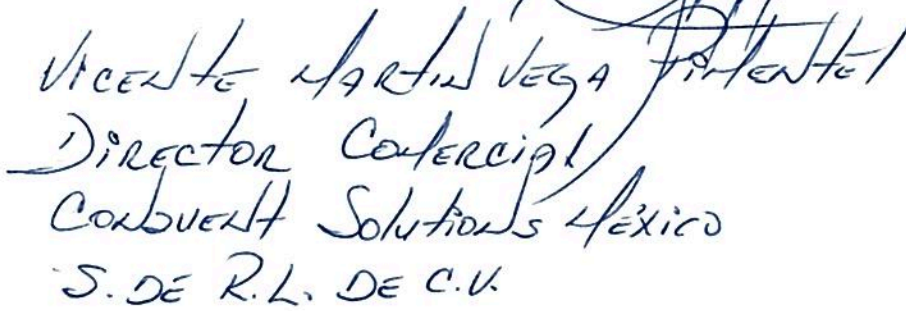 Vicente Martin Vega Pimentel
Director Comercial
Conquent Solutions México
S. DE R.L. DE C.V.